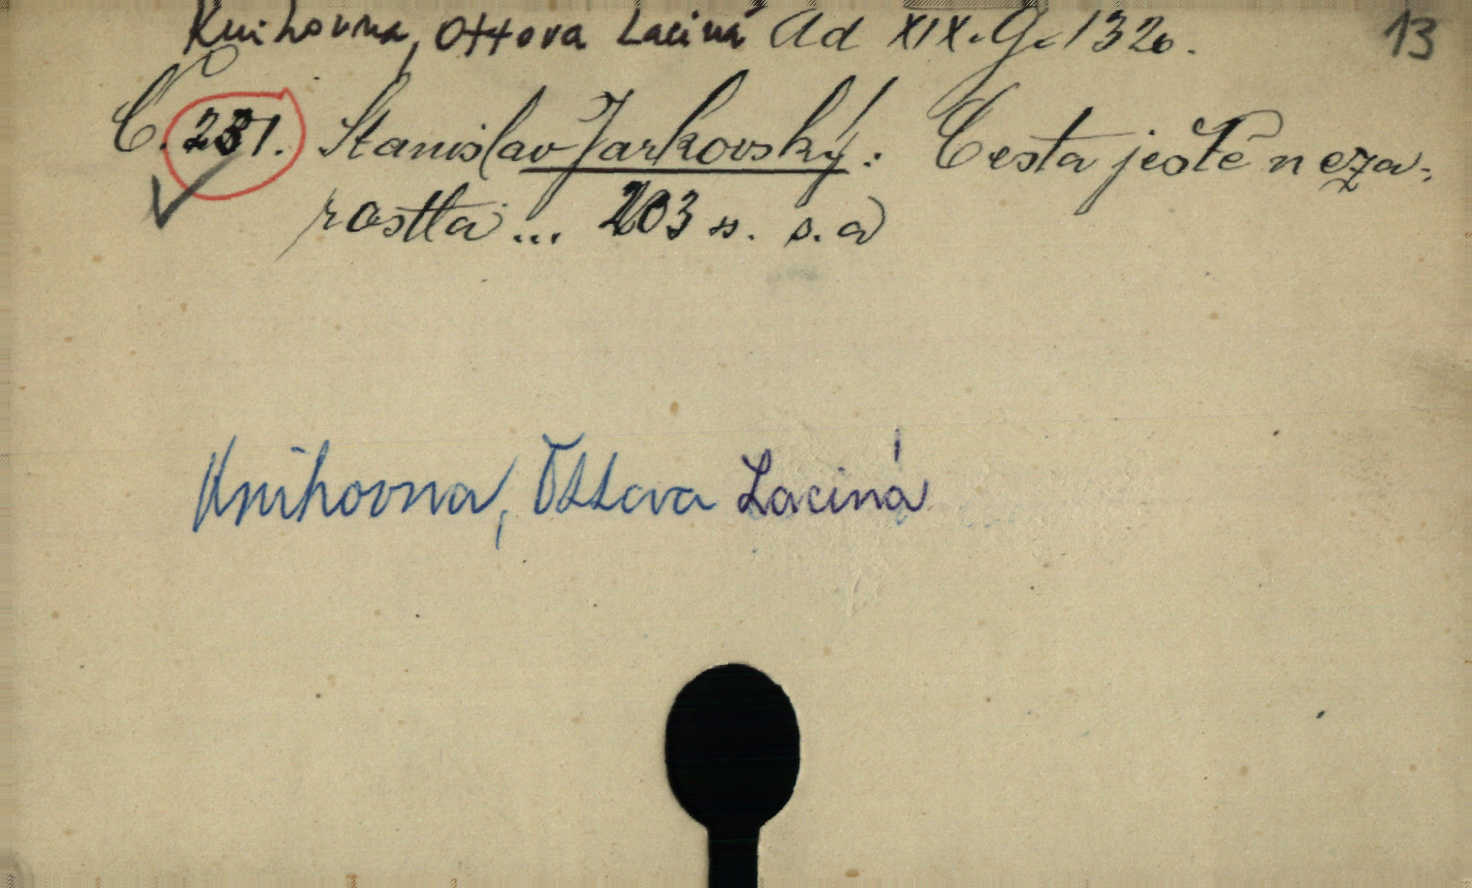 Knihovna, Ottova Laciná Ad XIX. G. 1320. 13
Č. 231. Stanislav Jarkovský: Cesta ještě neza-
rostla... 203 s. s. a
Knihovna, Ottova Laciná